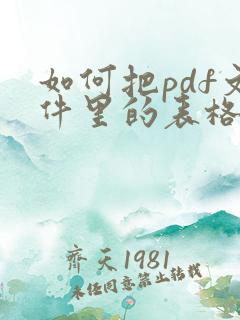 如何把pdf文
件里的表格
齐天1981
未经同意禁止转载